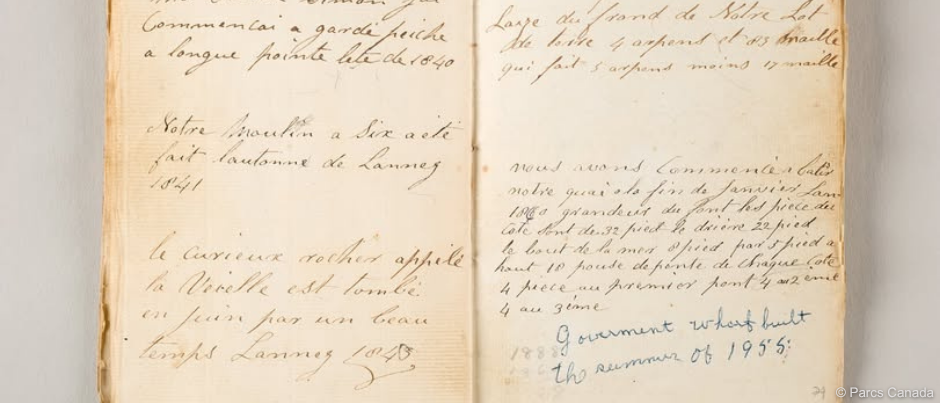 Commencai a garde peiche
a longue pointe lete de 1840
Notre Moulin a Six a été
fait lautonne de Lanneg
1841
le curieux rocher appilé
la Vieille est tombé
en juin par un beau
temps Lanneg 184
Large du frand de Notre Lot
de terre 4 arpens et 83 maille
qui fait 5 arpens moins 17 maille
nous avons Commencé a batir
notre quai a la fin de Janvier Lan
1860 grandeur du font les piece du
Coté sont de 32 pied le driere 22 pied
le bout de la mer 8 pied par 5 pied a
haut 18 pouse de pente de Chaque Coté
4 piece au premier pont 4 au 2 ème
4 au 3 éme
Goverment wharf built
the summer of 1955.
1888
© Parcs Canada